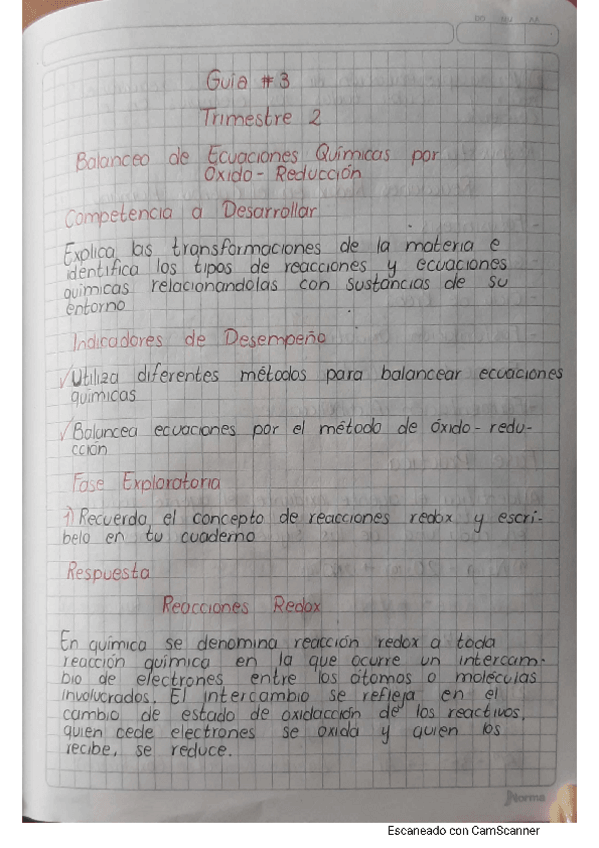 Guia # 3
Trimestre 2
Balanceo de Ecuaciones Químicas por
Óxido - Reducción
Competencia a Desarrollar
Explica las transformaciones de la materia e
identifica los tipos de reacciones y ecuaciones
químicas relacionandolas con sustancias de su
entorno
Indicadores de Desempeño
✓Utiliza diferentes métodos para balancear ecuaciones
químicas
✓Balancea ecuaciones por el método de óxido - redu-
cción
Fase Exploratoria
1) Recuerda el concepto de reacciones redox y escri-
belo en tu cuaderno
Respuesta
Reacciones Redox
En química se denomina reacción redox a toda
reacción química en la que ocurre un intercam-
bio de electrones entre los átomos o moléculas
involucrados. El intercambio se refleja en el
cambio de estado de oxidacción de los reactivos,
quien cede electrones se oxida y quien los
recibe, se reduce.
Norma
Escaneado con CamScanner